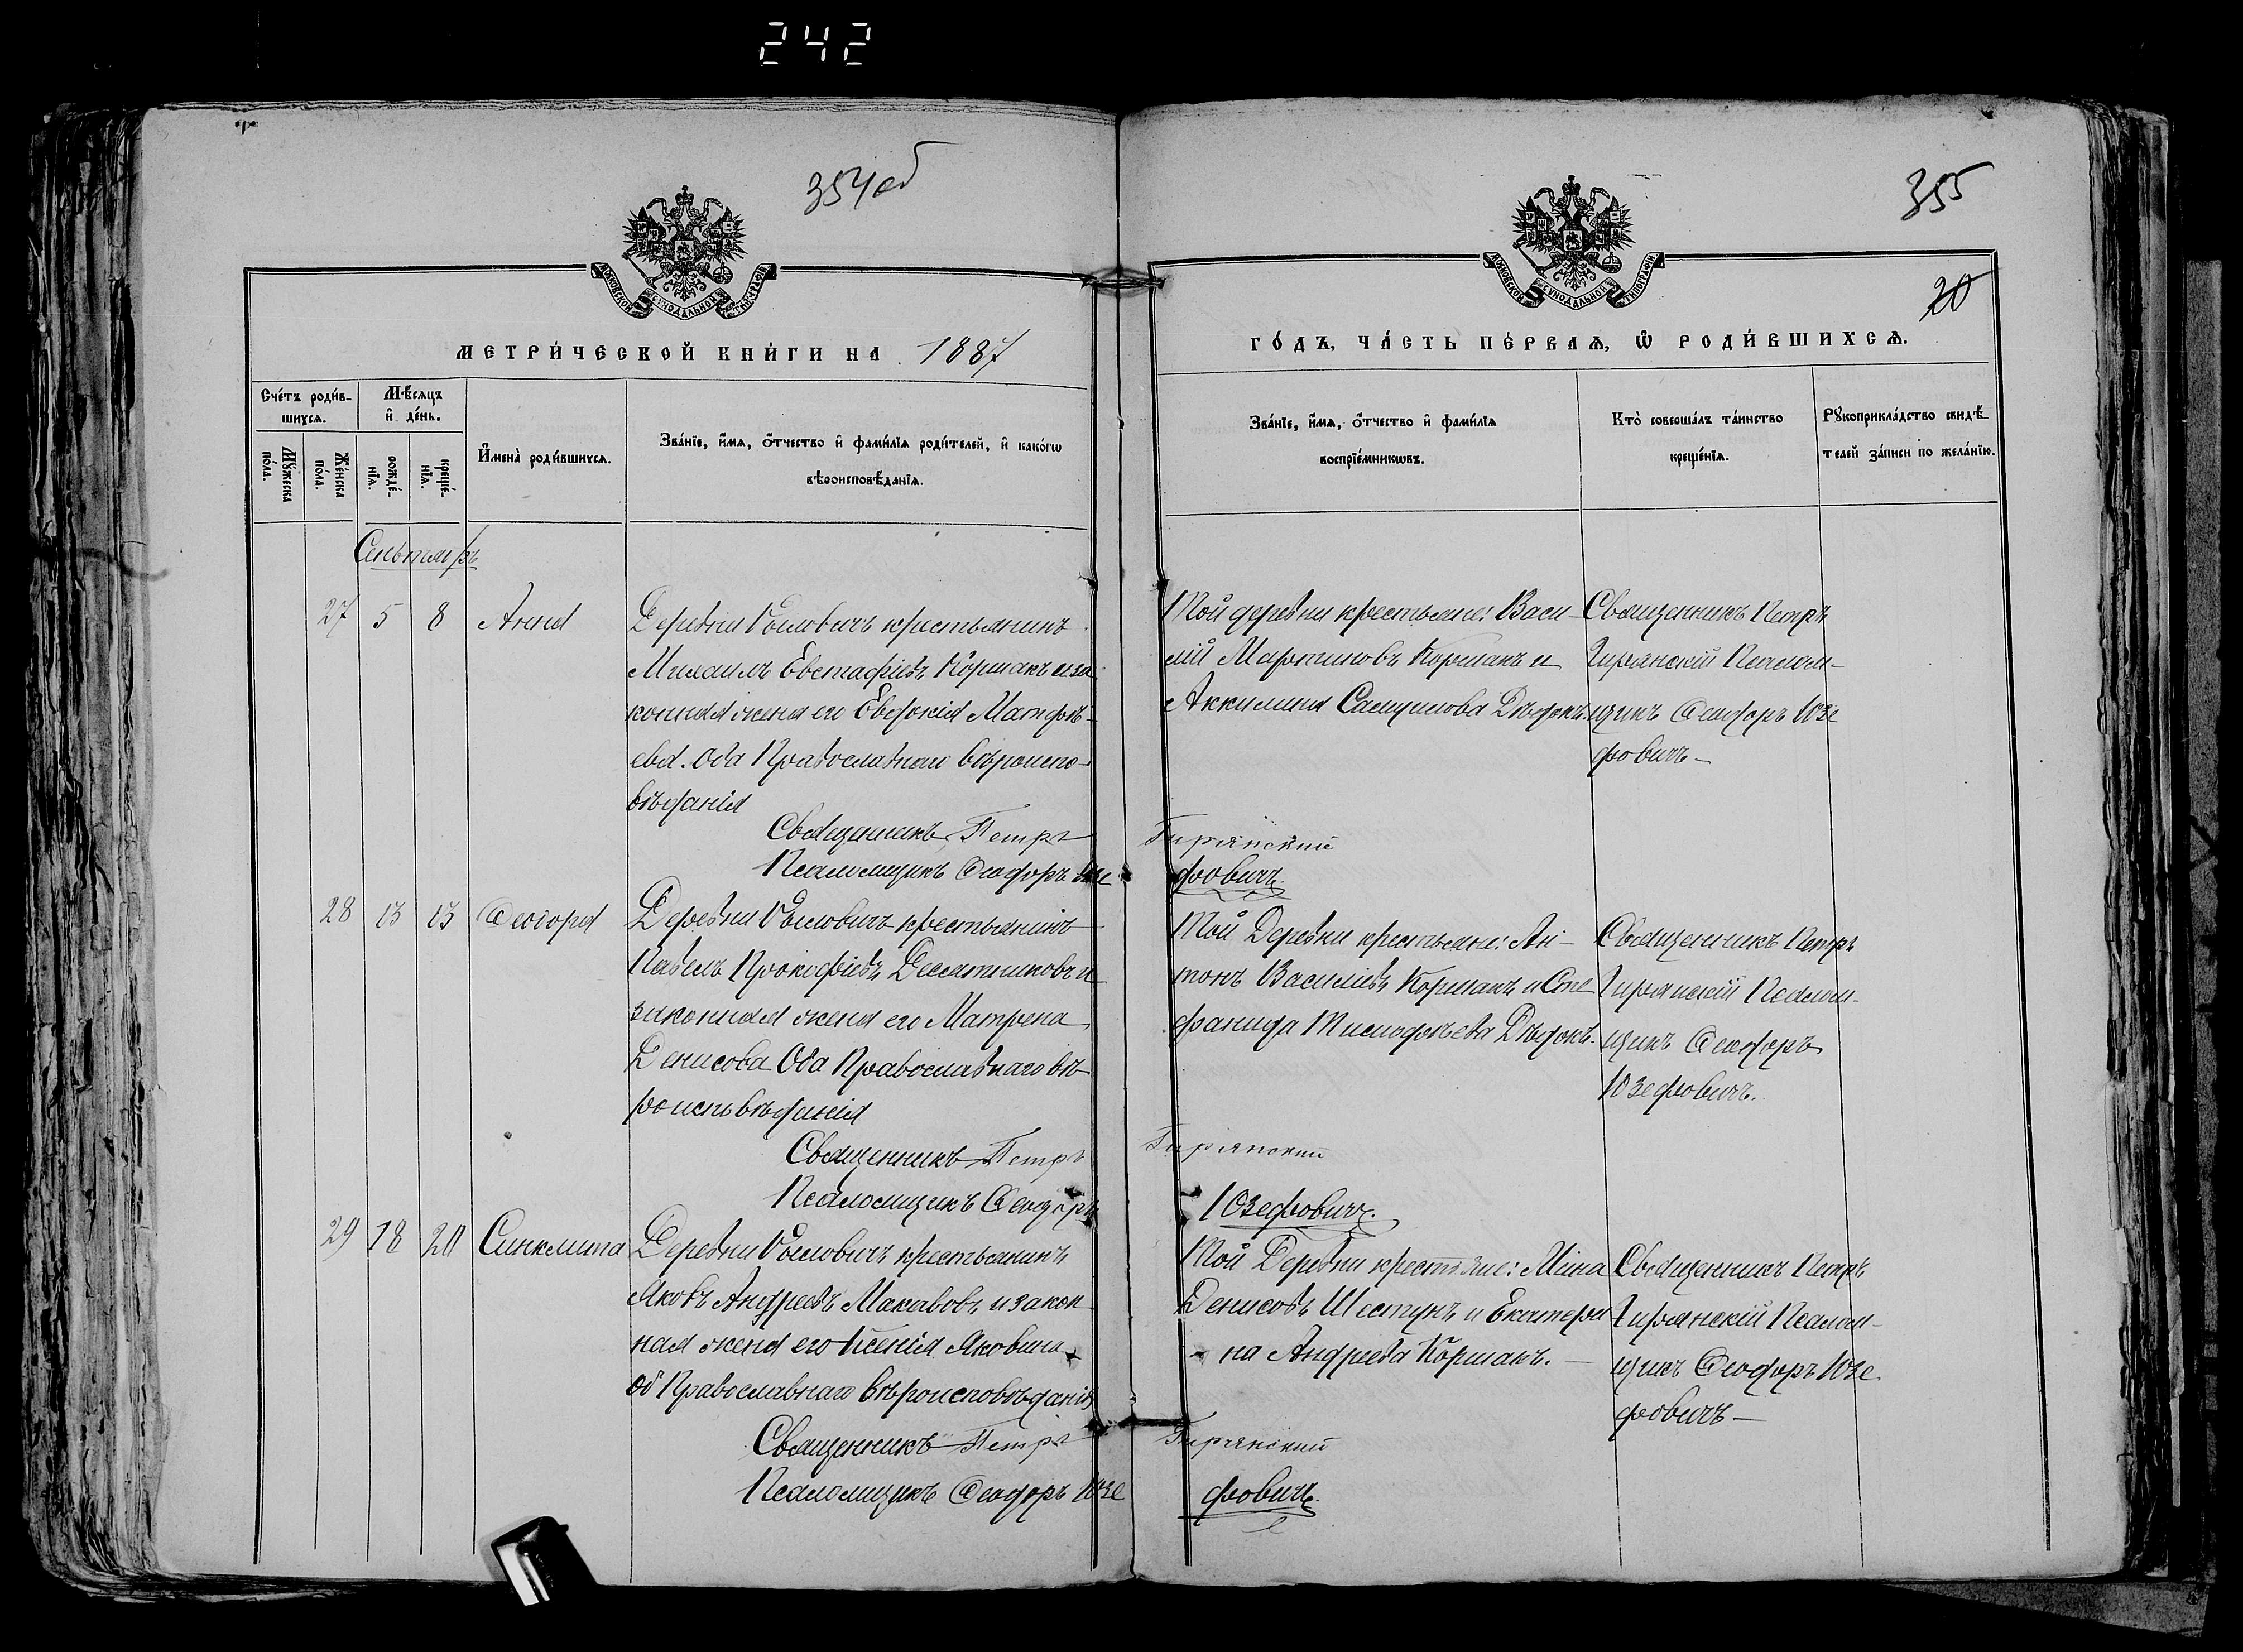 242
354об
355
20
МОСКОВСКОЙ СУНОДАЛЬНОЙ ТИПОГРАФІИ
МОСКОВСКОЙ СУНОДАЛЬНОЙ ТИПОГРАФІИ
МЕТРИ́ЧЕСКОЙ КНИ́ГИ НА 1887
ГО́ДЪ, ЧА́СТЬ ПЕ́РВАѦ, Ѽ РОДИ́ВШИХСѦ.
Сче́тъ роди́в-
шихсѧ.
Мѣ́сѧцъ
и҆ де́нь.
Мꙋ́жеска
по́ла.
Же́нска
по́ла.
рожде́-
нїѧ.
креще́-
нїѧ.
И҆мена̀ роди́вшихсѧ.
Зва́нїе, и҆́мѧ, ѻ҆́тчество и҆ фами́лїѧ роди́телей, и҆ како́гѡ
вѣроисповѣ́данїѧ.
Зва́нїе, и҆́мѧ, ѻ҆́тчество и҆ фами́лїѧ
воспрїе́мникѡвъ.
Кто̀ соверша́лъ та́инство
креще́нїѧ.
Рꙋкоприкла́дство свидѣ́-
телей за́писи по жела́нїю.
Сентябрь
27 5 8 Анна
Деревни крестьянинъ
Михаилъ Евстафіевъ Коршакъ и за
конная жена его Евдокія Матфѣ-
ева. Оба Православнаго вѣроиспо-
вѣданія
Священникъ Петръ Гирянскій
Псаломщикъ Ѳеодоръ Юзе фовичъ.
Той деревни крестьяне: Васи-
лій Мартиновъ Коршакъ и
Аккилина Дѣдокъ.
Священникъ Петръ
Гирянскій Псалом-
щикъ Ѳеодоръ Юзе
фовичъ –
28 13 13 Ѳеодора
Деревни крестьянинъ
Павелъ Прокофіевъ Десятниковъ и
законная жена его Матрена
Денисова Оба Православнаго вѣ-
роисповѣданія
Священникъ Петръ Гирянскій
Псаломщикъ Ѳеодоръ Юзефовичъ.
Той Деревни крестьяне: Ан-
тонъ Василіевъ Коршакъ и Сте
фанида Дѣдокъ.
Священникъ Петръ
Гирянскій Псалом-
щикъ Ѳеодоръ
Юзефовичъ.
29 18 20 Синклита
Деревни крестьянинъ
Яковъ Андреевъ Макавовъ и закон
ная жена его Ксенія Яковина
об Православнаго вѣроисповѣданія
Священникъ Петръ Гирянскій
Псаломщикъ Ѳеодоръ Юзе фовичъ.
Той Деревни крестьяне: Мина
Денисовъ Шестунъ и Екатери
на Андреева Коршакъ. –
Священникъ Петръ
Гирянскій Псалом-
щикъ Ѳеодоръ Юзе
фовичъ –